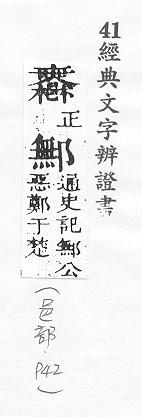 41經典文字辨證書
正
鄦
通史記鄦公
惡鄭于楚
(邑部.P42)